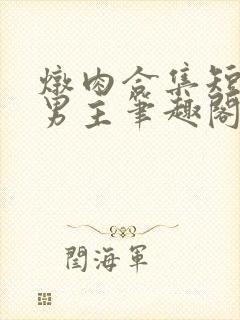 燉肉合集短
男主筆趣閣
閆海軍